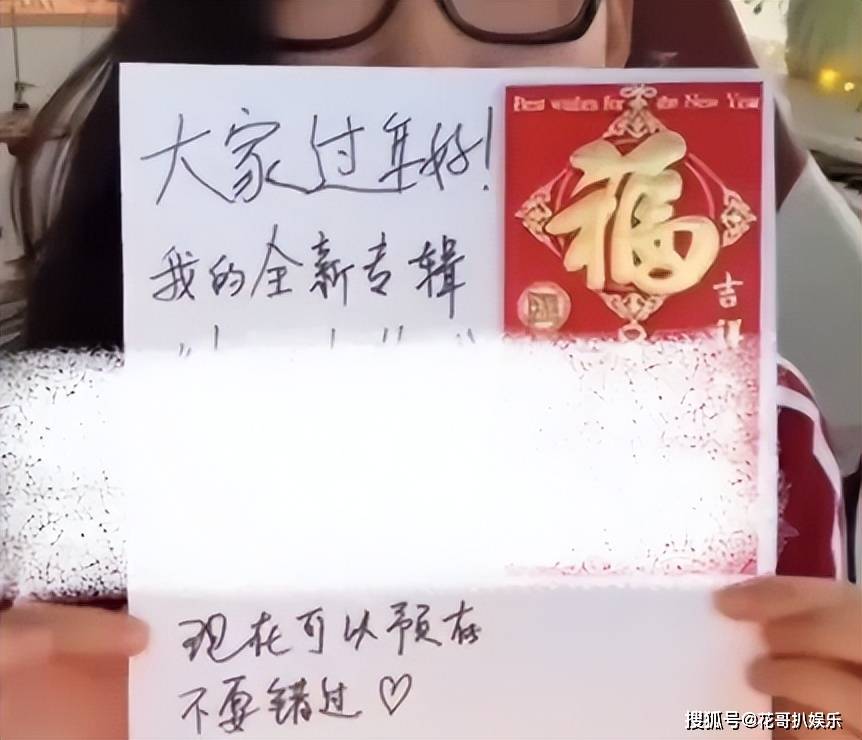 大家过年好!
我的全新专辑
现在可以预存
不要错过♡
Best wishes for the New Year
福
吉
搜狐号@花哥扒娱乐